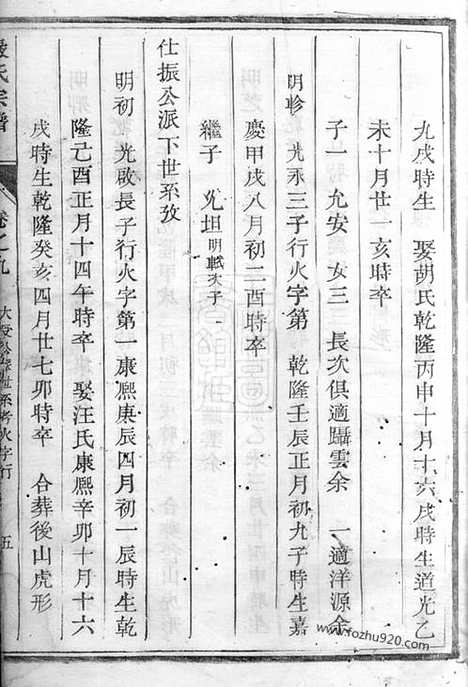 九戌時生　娶胡氏乾隆丙申十月十六戌時生道光乙
未十月廿一亥時卒
子一　允安　女三　長次俱適躡雲余　一適洋源余
明軫　光承三子行火字第　乾隆壬辰正月初九子時生嘉
慶甲戌八月初二酉時卒
繼子　允坦明軾次子
仕振公派下世系攷
明初　光啟長子行火字第一康熙庚辰四月初一辰時生乾
隆己酉正月十四午時卒　娶汪氏康熙辛卯十月十六
戌時生乾隆癸亥四月廿七卯時卒　合葬後山虎形
氏宗譜
卷之九
世系考火字行
五
www.fozhu920.com